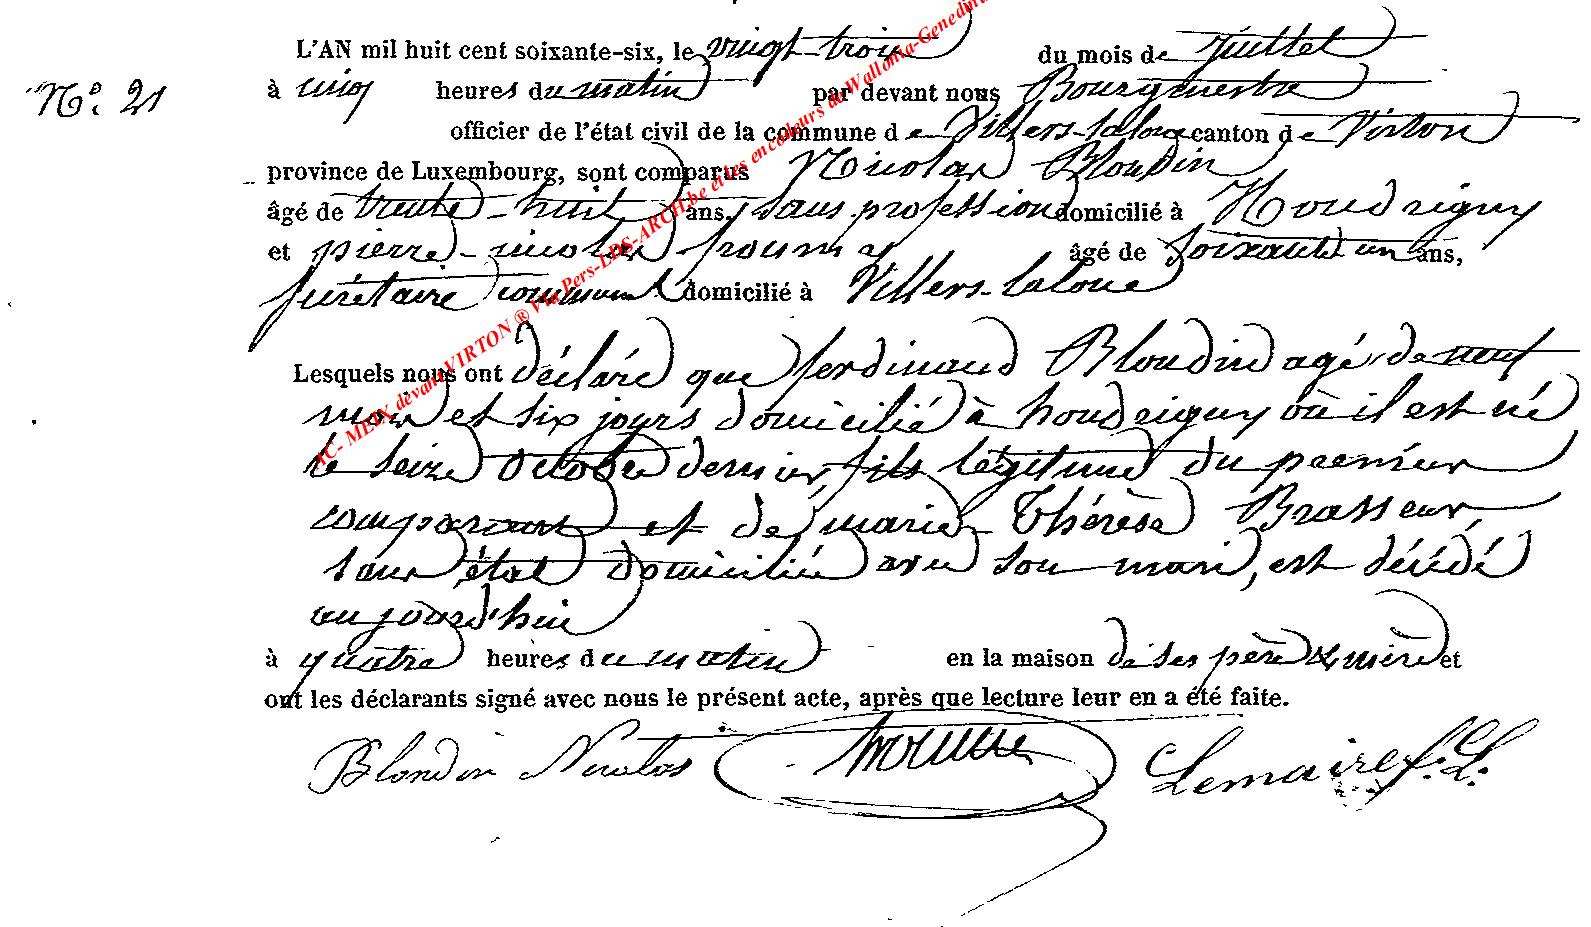 L'AN mil huit cent soixante-six, le vingt-trois du mois de Juillet
N.º 21
à cinq heures du matin par devant nous Bourgmestre
officier de l'état civil de la commune de Villers-laloue canton de Virton
province de Luxembourg, sont comparus Nicolas Blondin
âgé de trente-huit ans, sans profession domicilié à Houdrigny
et pierre-nicolas âgé de soixante un ans,
secrétaire communal domicilié à Villers-laloue
Lesquels nous ont déclaré que ferdinand Blondin agé de neuf
mois et six jours domicilié à houdrigny où il est né
le seize octobre dernier, fils légitime du premier
comparant et de marie-Thérèse Brasseur,
sans état domiciliée avec son mari, est décédé
aujourd'hui
à quatre heures du matin en la maison de ses père & mère et
ont les déclarants signé avec nous le présent acte, après que lecture leur en a été faite.
Blondin Nicolas Lemaire f. L.
JC- MEUX devant VIRTON ® Via Pers-LDS-ARCH.be et les encodeurs de Wallonia-Genedin